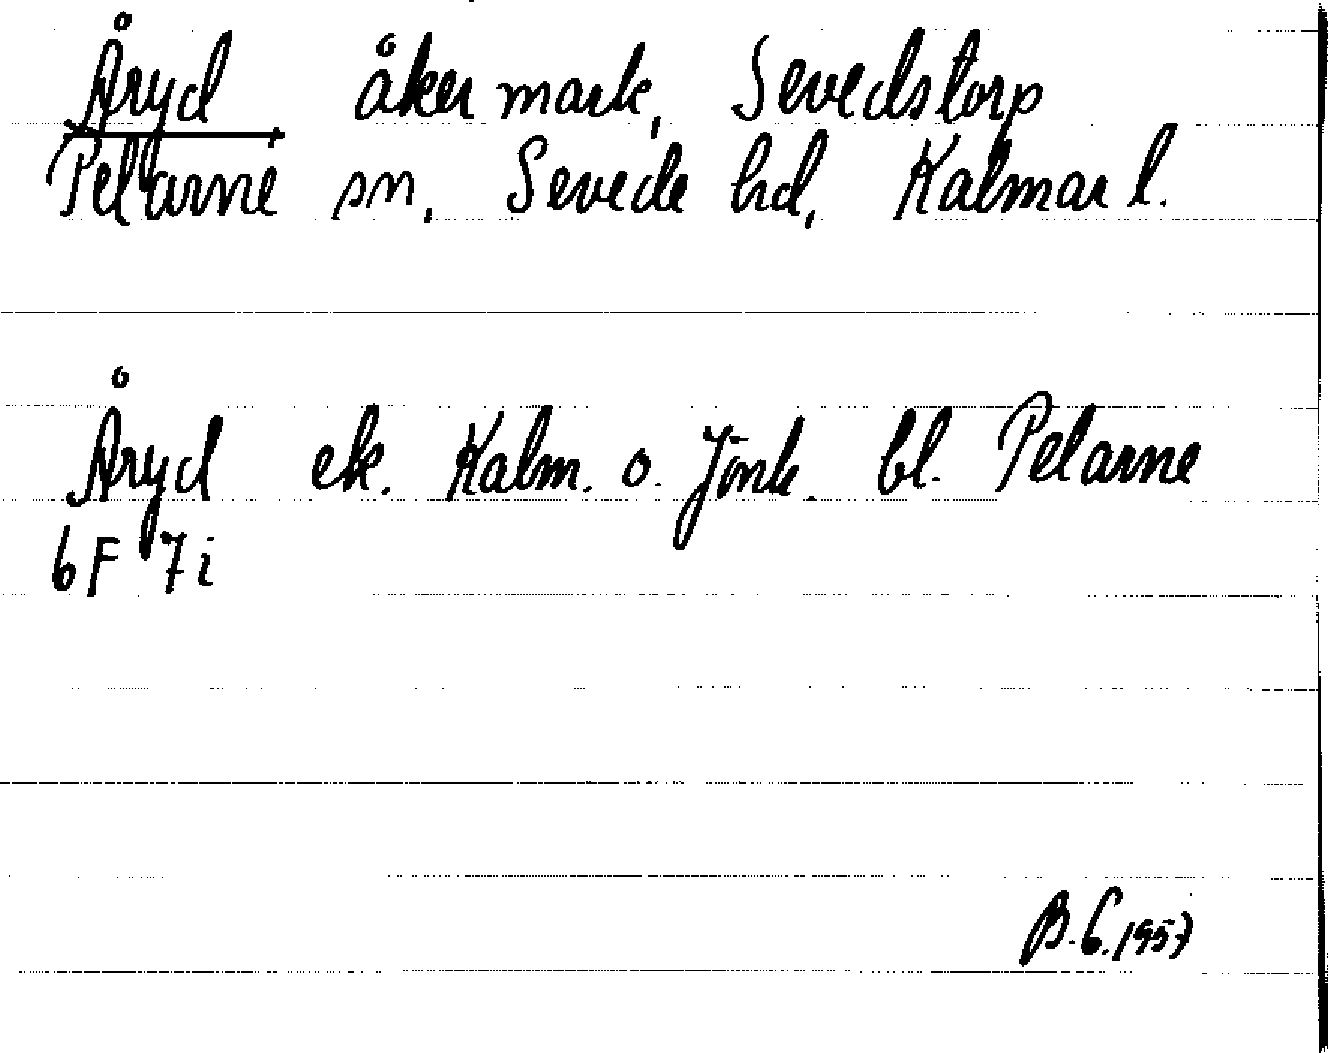 Åryd åkermark, Sevedstorp
Pelarne sn, Sevede hd, Kalmar l.
Åryd ek. Kalm. o. Jönk. bl. Pelarne
6F 7i
B.G. 1957